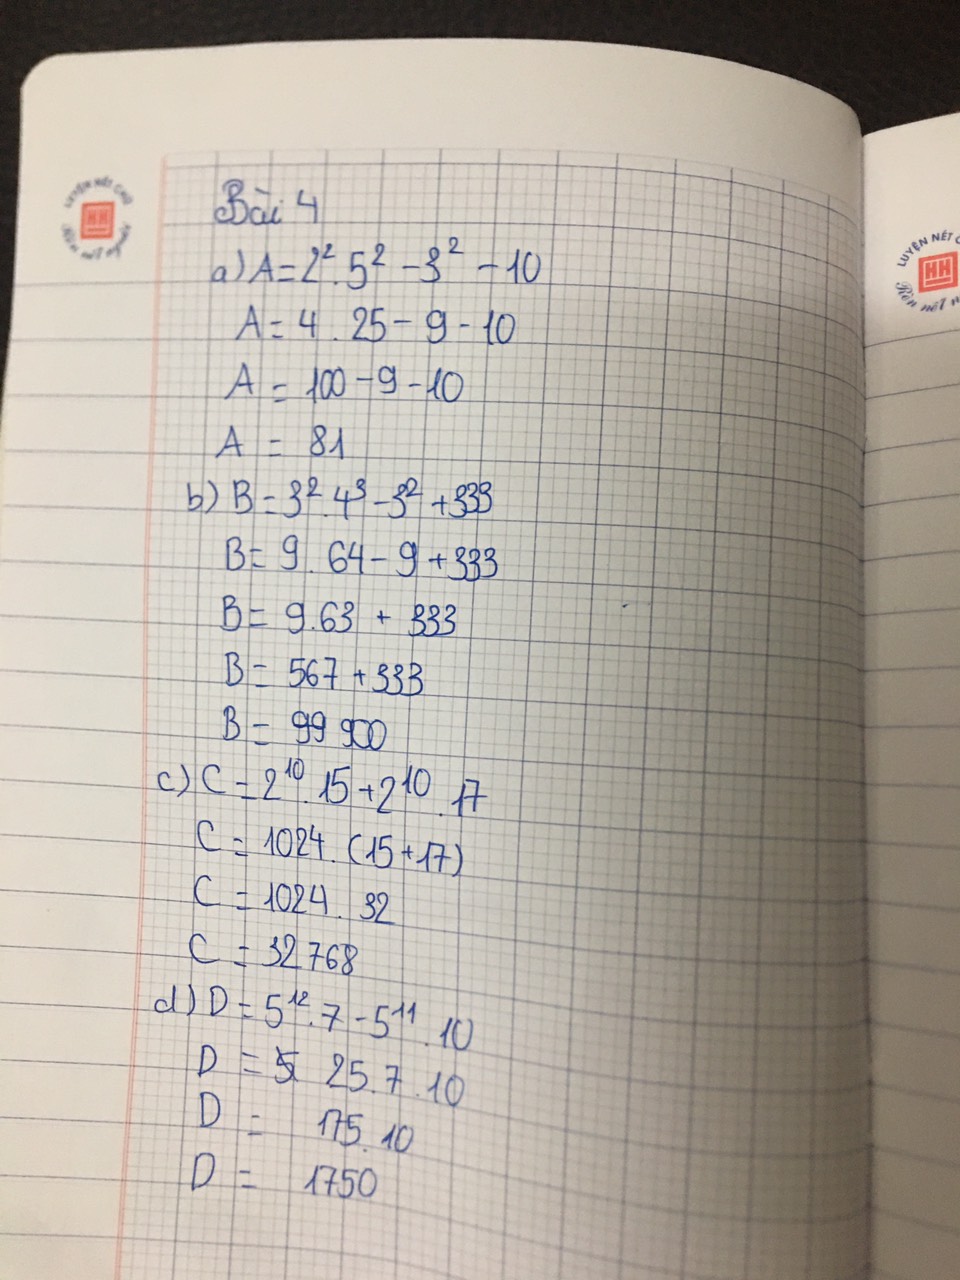 LUYỆN NÉT CHỮ
HH
Rèn nết người
Bài 4
a) A = 2² . 5² - 3² - 10
A = 4 . 25 - 9 - 10
A = 100 - 9 - 10
A = 81
b) B = 3² . 4³ - 3² + 333
B = 9 . 64 - 9 + 333
B = 9.63 + 333
B = 567 + 333
B = 99 900
c) C = 2¹⁰ . 15 + 2¹⁰ . 17
C = 1024 . (15 + 17)
C = 1024 . 32
C = 32 768
d) D = 5¹² . 7 - 5¹¹ . 10
D = 25 . 7 . 10
D = 175 . 10
D = 1750
LUYỆN NÉT C
HH
Rèn nết n